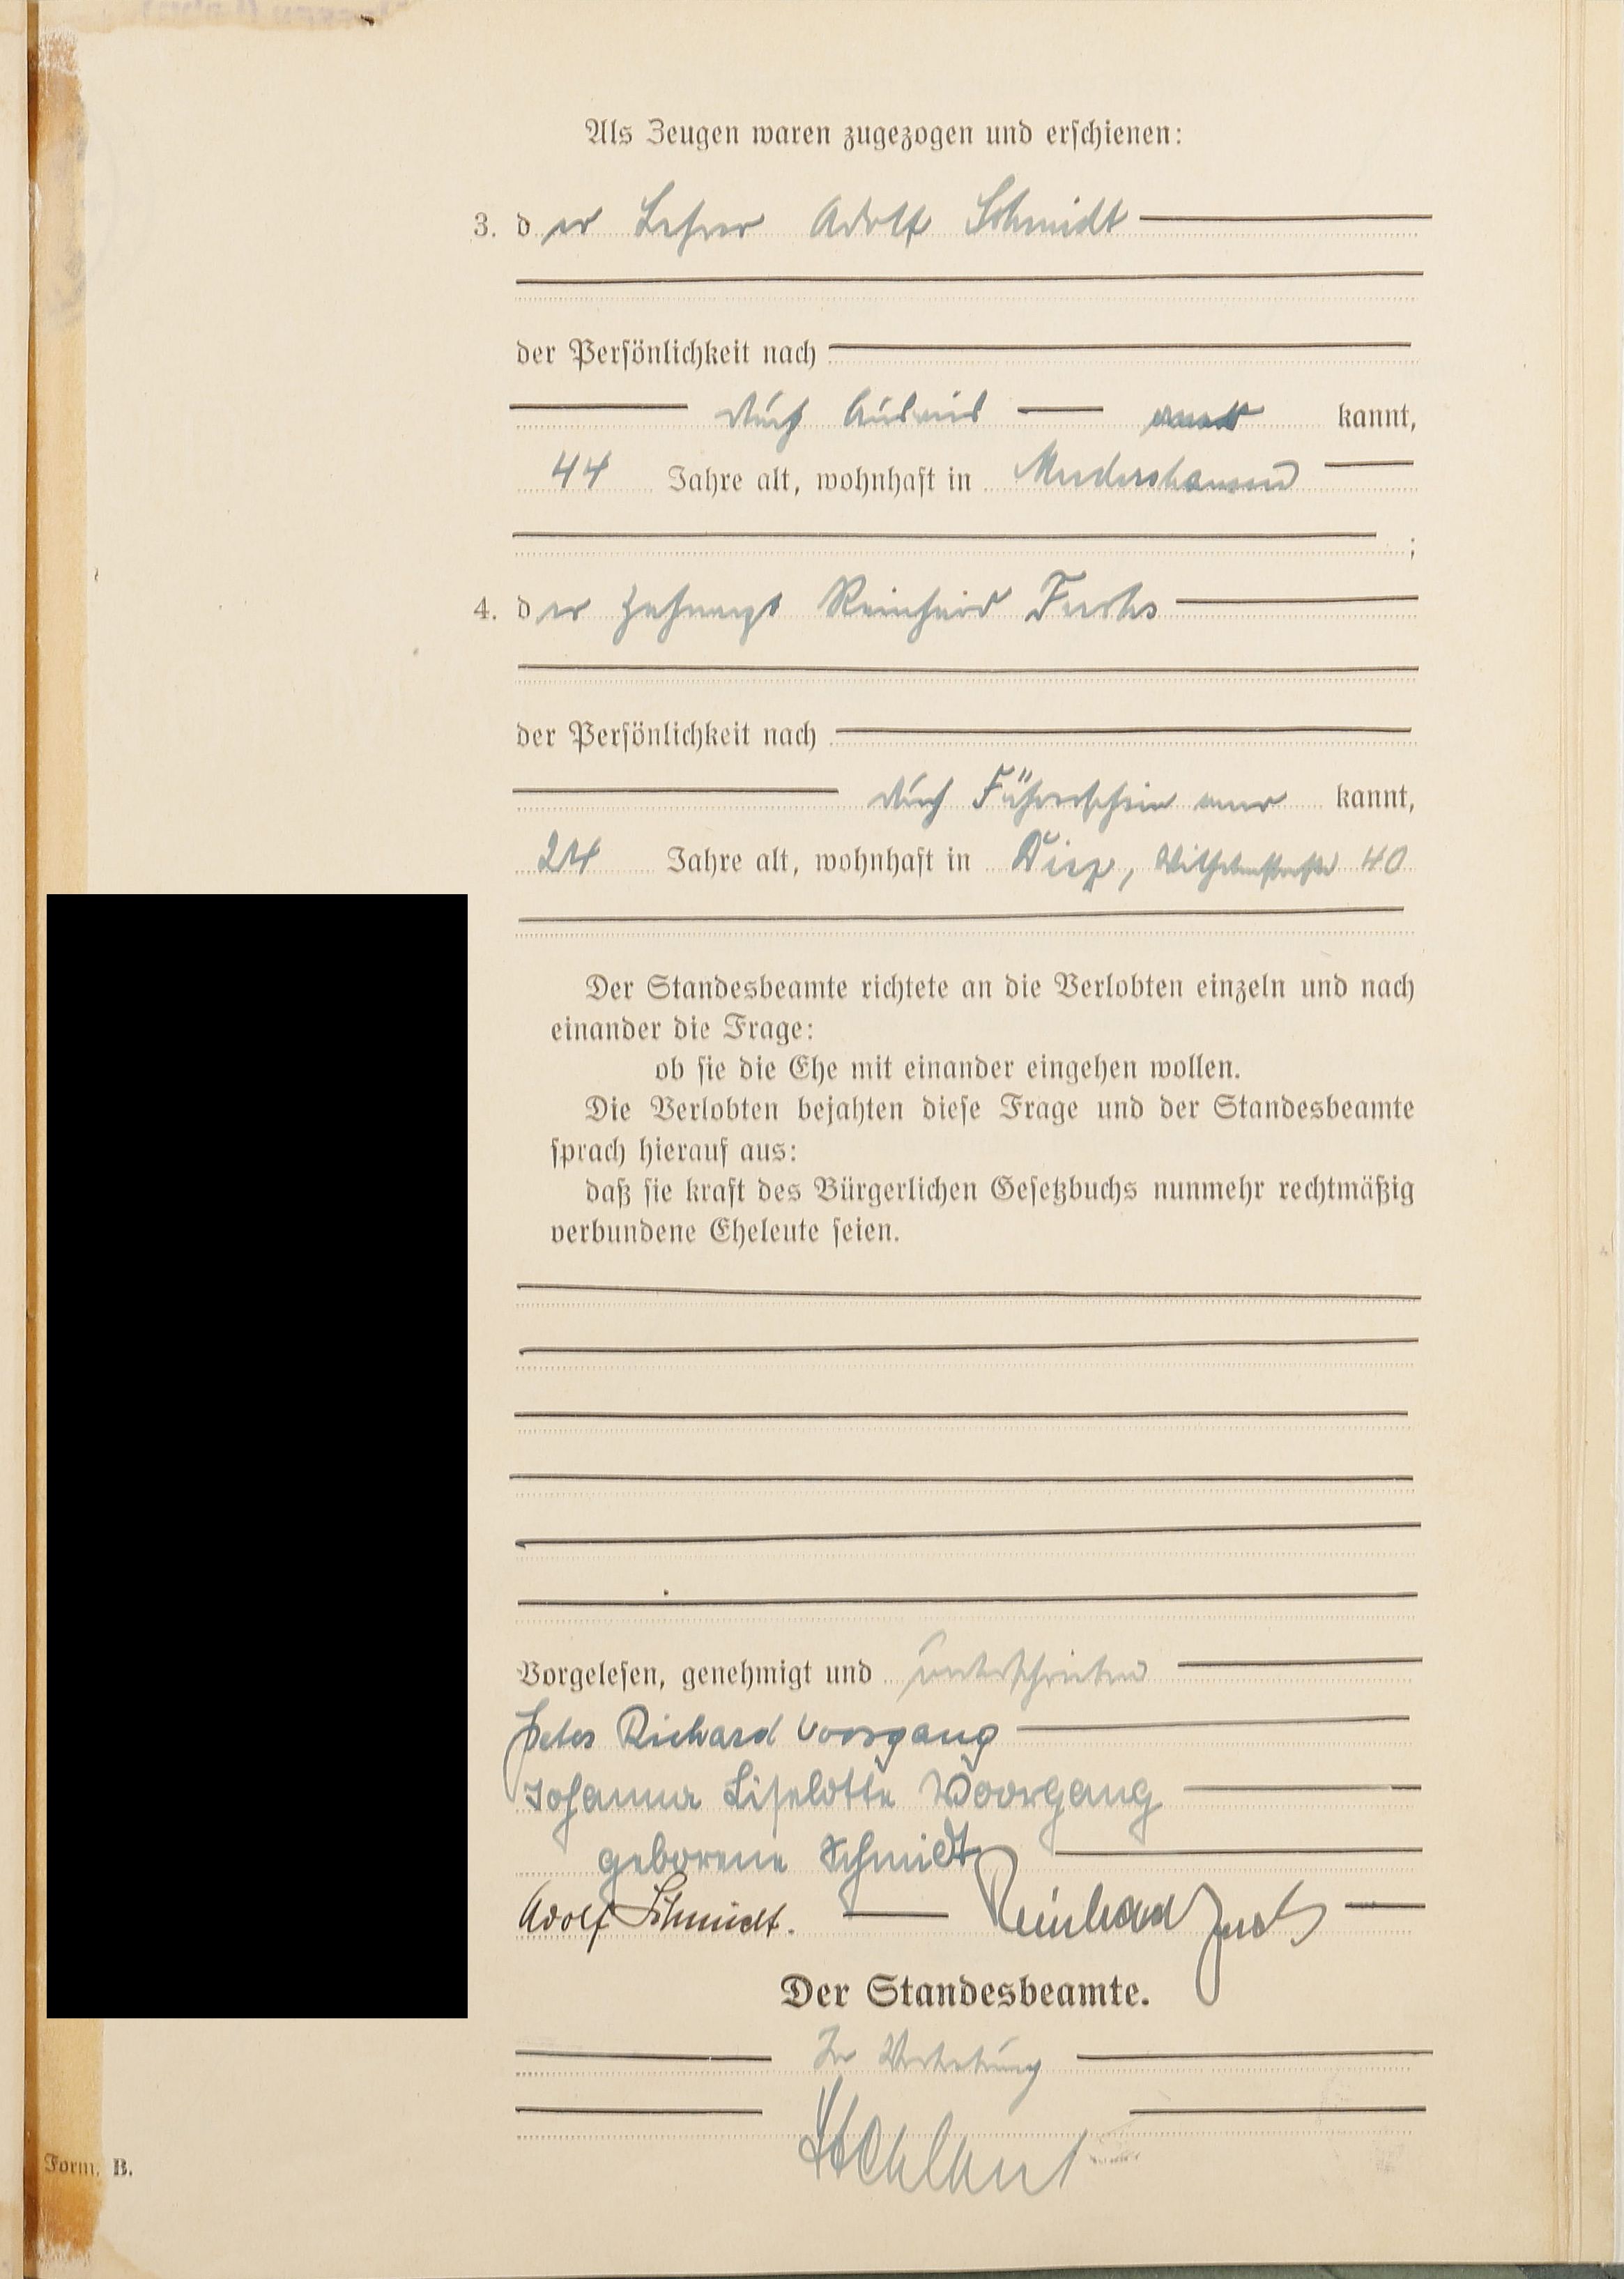 Als Zeugen waren zugezogen und erschienen:
3. der Lehrer Adolf Schmidt
der Persönlichkeit nach
durch Ausweis kannt,
44 Jahre alt, wohnhaft in Mudershausen
;
4. der Zahnarzt Reinhard Fuchs
der Persönlichkeit nach
durch Führerschein aner kannt,
24 Jahre alt, wohnhaft in Diez, Wilhelmstraße 40
Der Standesbeamte richtete an die Verlobten einzeln und nach
einander die Frage:
ob sie die Ehe mit einander eingehen wollen.
Die Verlobten bejahten diese Frage und der Standesbeamte
sprach hierauf aus:
daß sie kraft des Bürgerlichen Gesetzbuchs nunmehr rechtmäßig
verbundene Eheleute seien.
Vorgelesen, genehmigt und unterschrieben
Peter Richard Voorgang
Johanna Liselotte Voorgang
geborene Schmidt
Adolf Schmidt. Reinhard Fuchs
Der Standesbeamte.
In Vertretung
Form. B.